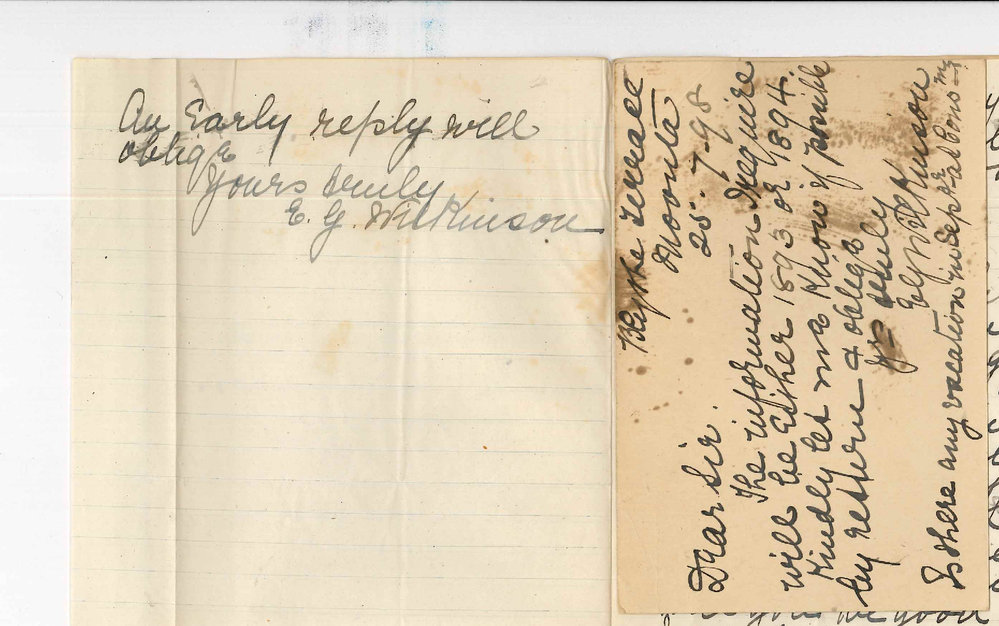 An Early reply will
oblige
Yours truly
E. G. Wilkinson
Blythe Terrace
Moonta
25-7-98
Dear Sir.
The information I require
will be Either 1893 or 1894.
Kindly let me know if possible
by return & oblige
yrs truly
E G Wilkinson
Is there any vacation in Sep